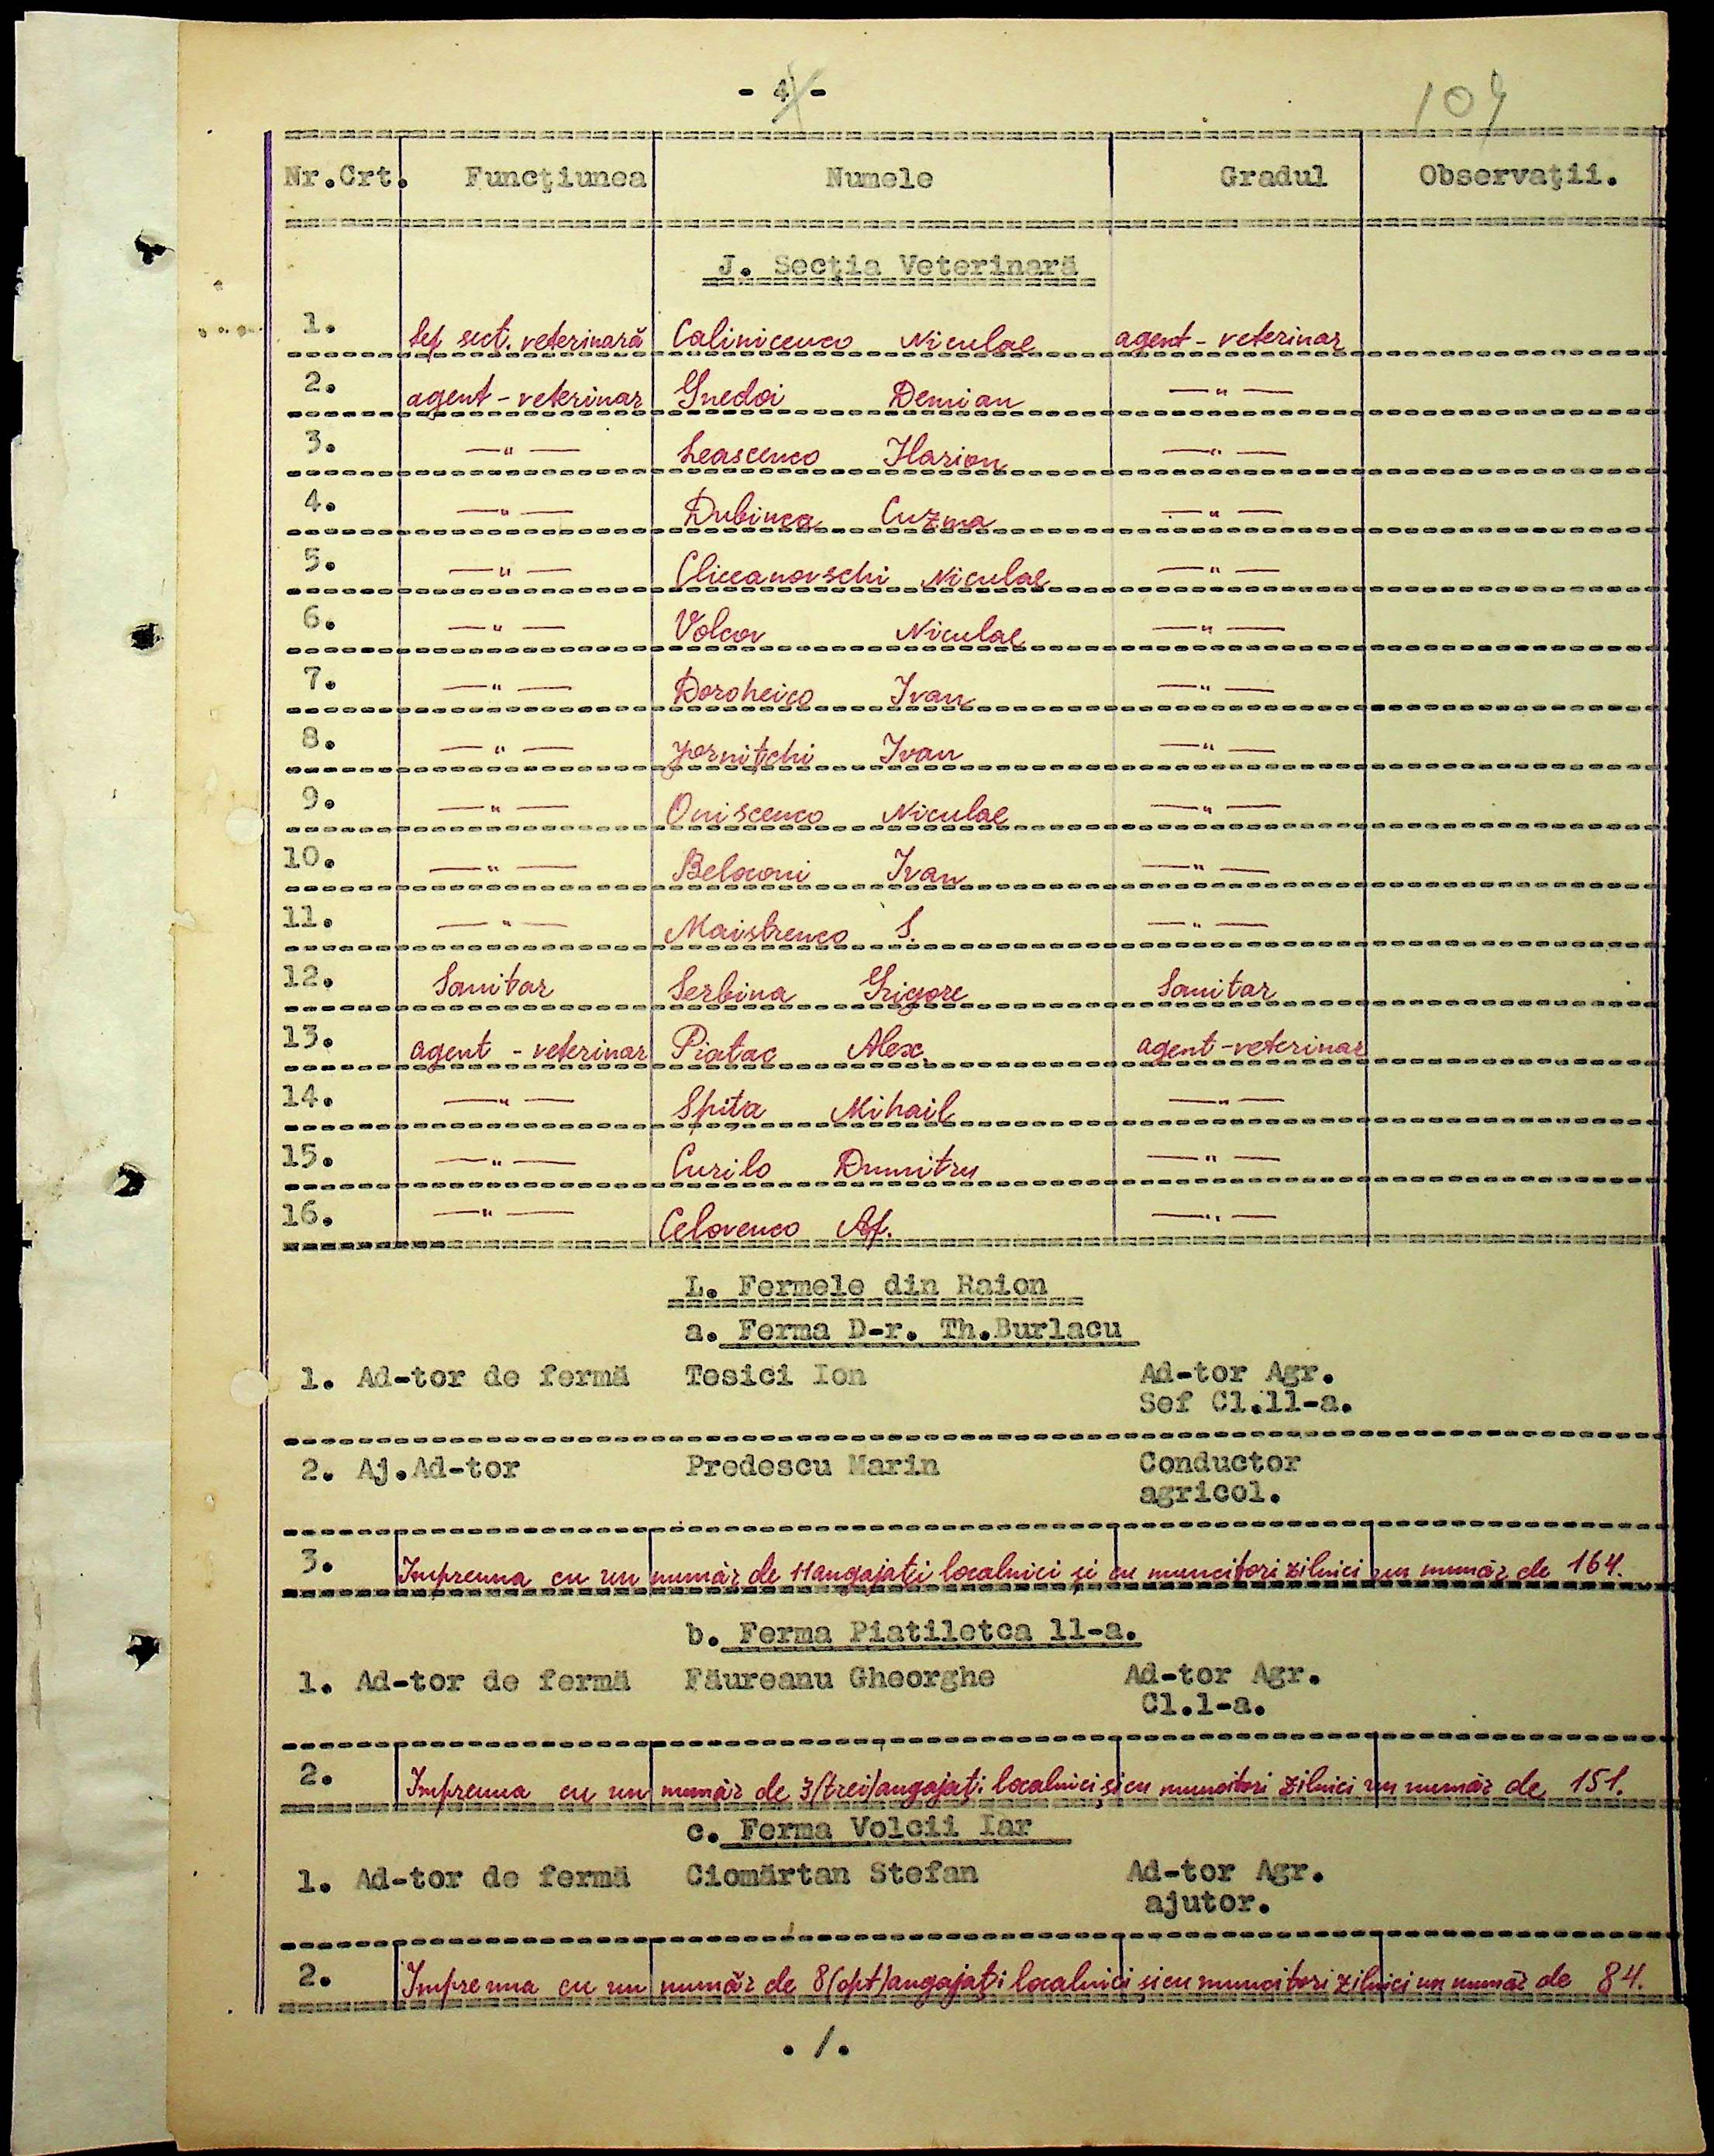 - 4 -
Nr.Crt. Funcţiunea Numele Gradul Observaţii.
J. Secţia Veterinară
1. Sef sect. veterinară Calinicenco Niculae agent-veterinar
2. agent-veterinar Gnedoi Demian —"—
3. —"— Leascenco Ilarion —"—
4. —"— Dubinca Cuzma —"—
5. —"— Cliceanovschi Niculae —"—
6. —"— Volcov Niculae —"—
7. —"— Doroheico Ivan —"—
8. —"— Ivan —"—
9. —"— Oniscenco Niculae —"—
10. —"— Beloconi Ivan —"—
11. —"— Maistrenco S. —"—
12. Sanitar Serbina Grigore Sanitar
13. agent-veterinar Piatac Alex. agent-veterinar
14. —"— Spita Mihail —"—
15. —"— Curilo Dumitru —"—
16. —"— Celovenco Af. —"—
L. Fermele din Raion
a. Ferma D-r. Th.Burlacu
1. Ad-tor de fermă Tesici Ion Ad-tor Agr.
Sef Cl.11-a.
2. Aj.Ad-tor Predescu Marin Conductor
agricol.
3. Impreuna cu un număr de 11 angajaţi localnici şi cu muncitori zilnici un număr de 164.
b. Ferma Piatiletca 11-a.
1. Ad-tor de fermă Făureanu Gheorghe Ad-tor Agr.
Cl.1-a.
2. Impreuna cu un număr de 3(trei)angajaţi localnici şi cu muncitori zilnici un număr de 151.
c. Ferma Volcii Iar
1. Ad-tor de fermă Ciomărtan Stefan Ad-tor Agr.
ajutor.
2. Impreuna cu un număr de 8(opt)angajaţi localnici şi cu muncitori zilnici un număr de 84.
./.